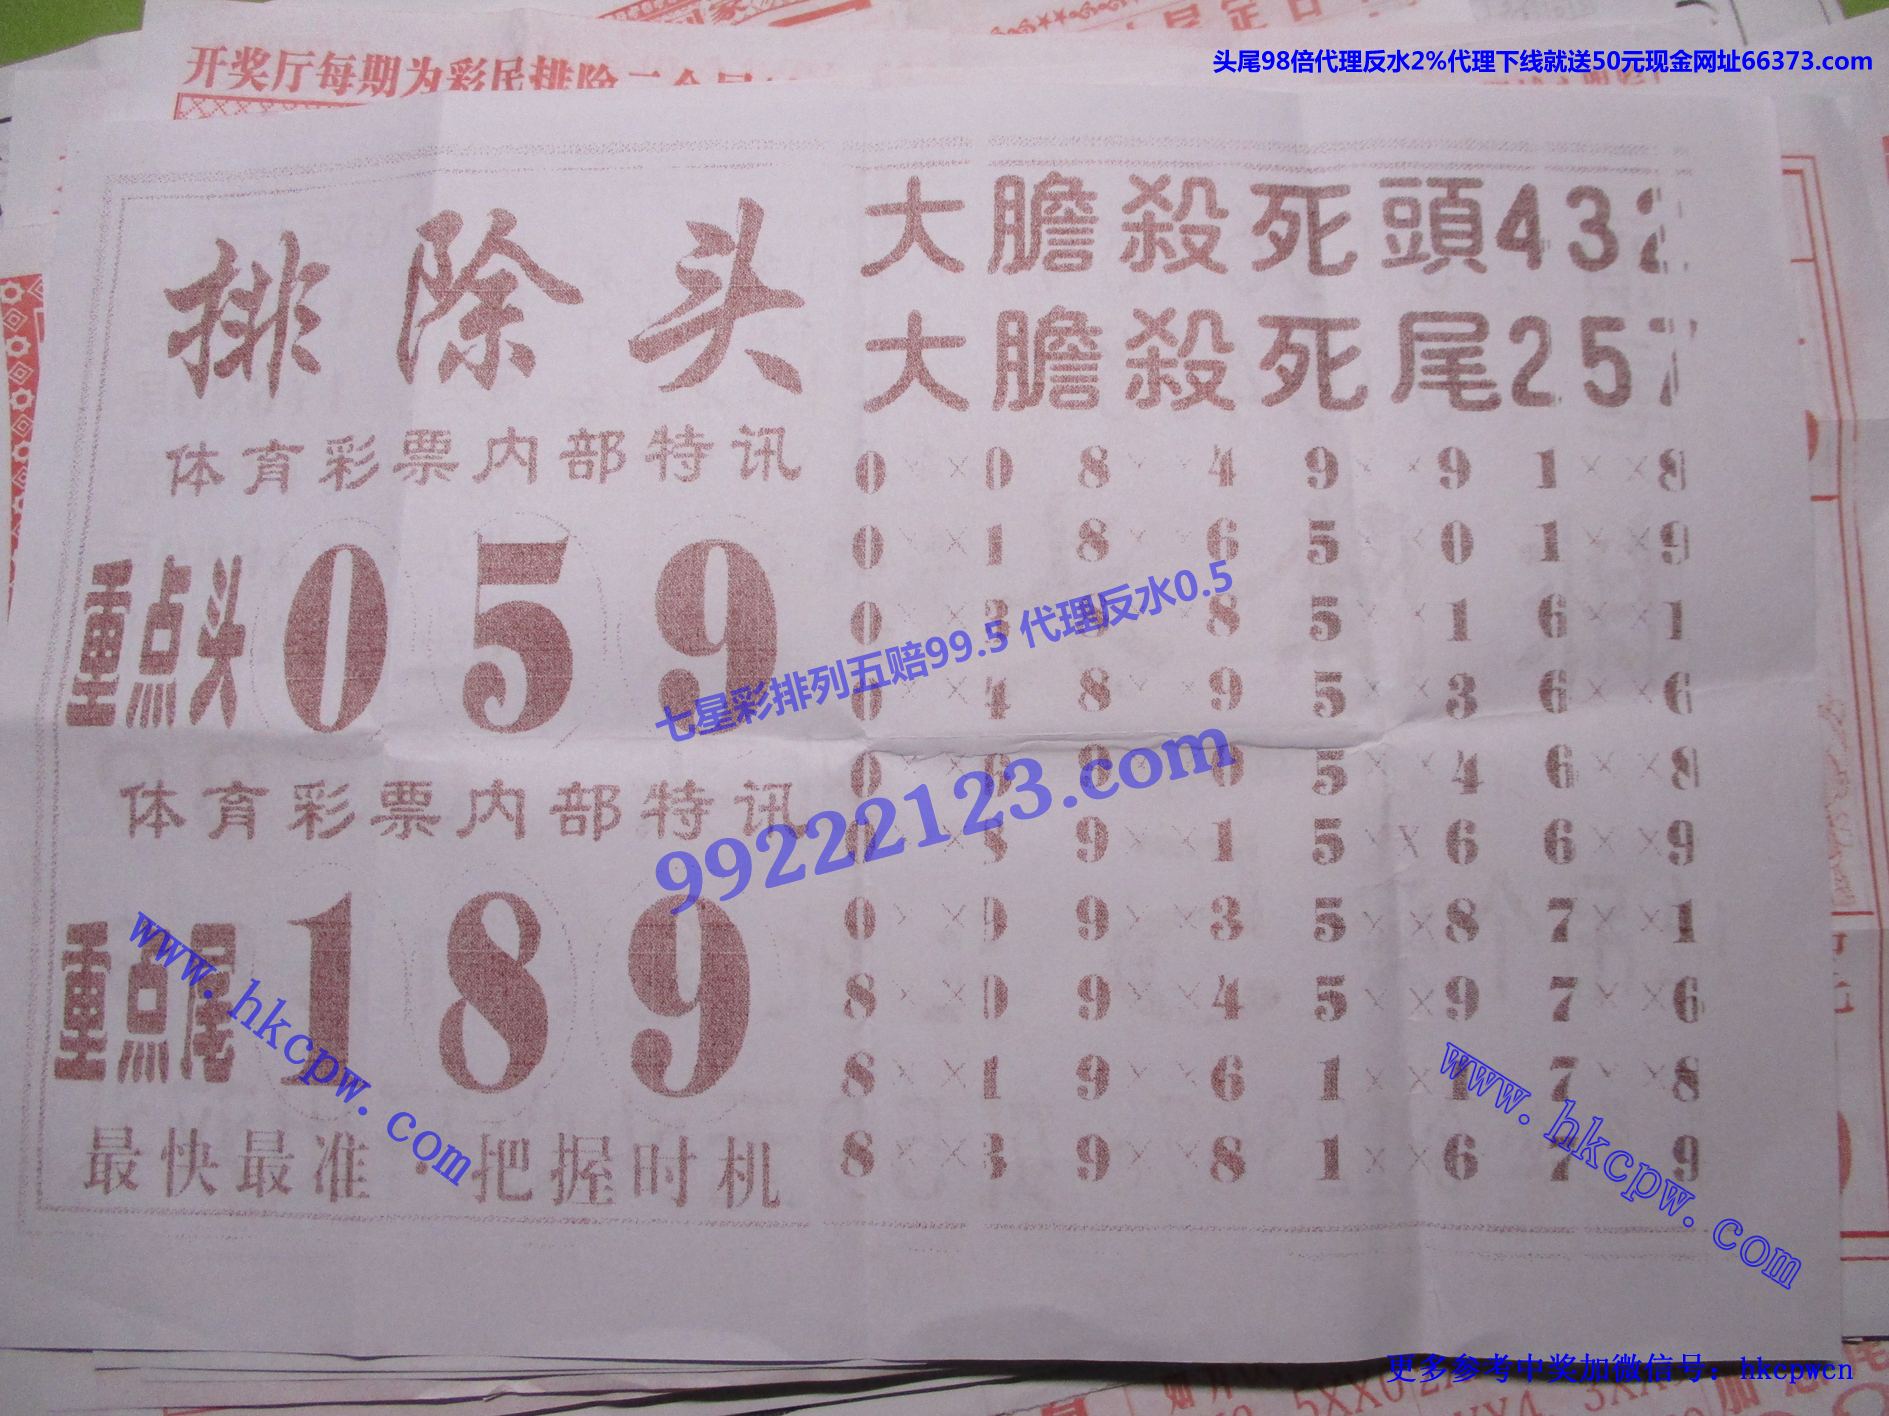 头尾98倍代理反水2%代理下线就送50元现金网址66373.com
开奖厅每期为彩民排除二个
排除头
体育彩票内部特讯
重点头 0 5 9
体育彩票内部特讯
重点尾 1 8 9
最快最准·把握时机
大膽殺死頭432
大膽殺死尾257
0××0 8××4 9××9 1××8
0××1 8××6 5××0 1××9
0××3 8××8 5××1 6××1
0××4 8××9 5××3 6××6
0××6 5××4 6××8
0××8 9××1 5××6 6××9
0××9 9××3 5××8 7××1
8××0 9××4 5××9 7××6
8××1 9××6 1××1 7××8
8××3 9××8 1××6 7××9
七星彩排列五赔99.5 代理反水0.5
99222123.com
www.hkcpw.com
www.hkcpw.com
更多参考中奖加微信号：hkcpwcn